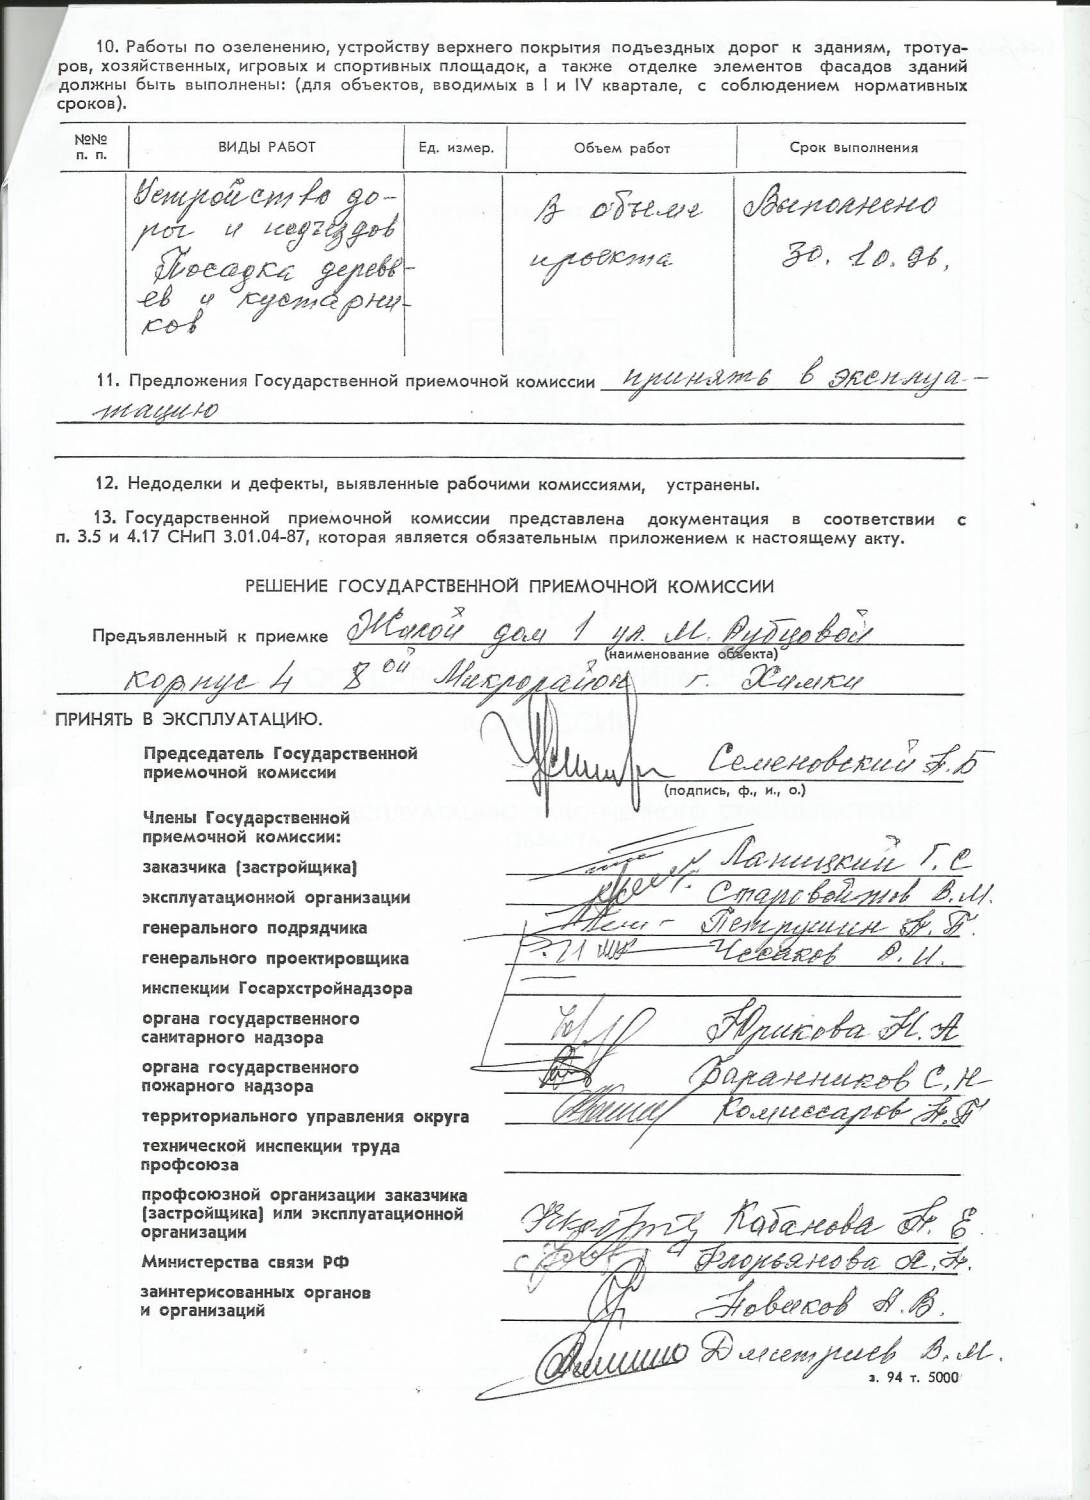 10. Работы по озеленению, устройству верхнего покрытия подъездных дорог к зданиям, тротуа-
ров, хозяйственных, игровых и спортивных площадок, а также отделке элементов фасадов зданий
должны быть выполнены: (для объектов, вводимых в I и IV квартале, с соблюдением нормативных
сроков).
№№ п. п. ВИДЫ РАБОТ Ед. измер. Объем работ Срок выполнения
Устройство до- В объеме Выполнено
рог и подъездов проекта 30.10.96.
Посадка деревь-
ев и кустарни-
ков
11. Предложения Государственной приемочной комиссии принять в эксплуа-
тацию
12. Недоделки и дефекты, выявленные рабочими комиссиями, устранены.
13. Государственной приемочной комиссии представлена документация в соответствии с
п. 3.5 и 4.17 СНиП 3.01.04-87, которая является обязательным приложением к настоящему акту.
РЕШЕНИЕ ГОСУДАРСТВЕННОЙ ПРИЕМОЧНОЙ КОМИССИИ
Предъявленный к приемке Жилой дом 1 ул. М. Рубцовой
(наименование объекта)
корпус 4 8ой Микрорайон г. Химки
ПРИНЯТЬ В ЭКСПЛУАТАЦИЮ.
Председатель Государственной
приемочной комиссии Семеновский А.Б
(подпись, ф., и., о.)
Члены Государственной
приемочной комиссии:
заказчика (застройщика) Лапицкий Г. С
эксплуатационной организации Старовойтов В.М.
генерального подрядчика Петрушин А. П.
генерального проектировщика Чесаков
инспекции Госархстройнадзора
органа государственного
санитарного надзора Юрикова Н. А
органа государственного
пожарного надзора Баранников С. Н
территориального управления округа Комиссаров А.П
технической инспекции труда
профсоюза
профсоюзной организации заказчика
(застройщика) или эксплуатационной
организации Кабанова Н. Е.
Министерства связи РФ
заинтерисованных органов
и организаций Новиков А. В.
Дмитриев В. М.
з. 94 т. 5000